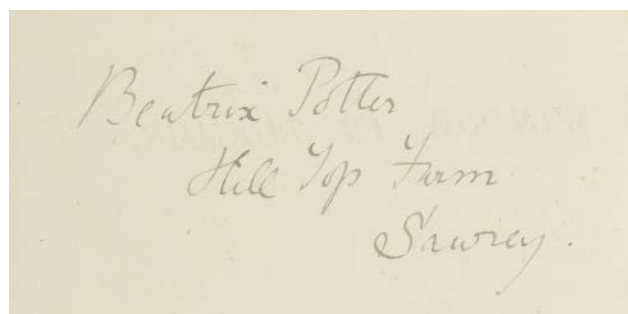 Beatrix Potter
Hill Top Farm
Sawrey.